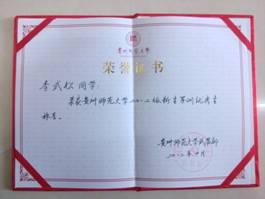 贵州师范大学
荣誉证书
李武松同学
荣获贵州师范大学二〇一二级新生军训优秀生
称号。
贵州师范大学武装部
二〇一二年十月